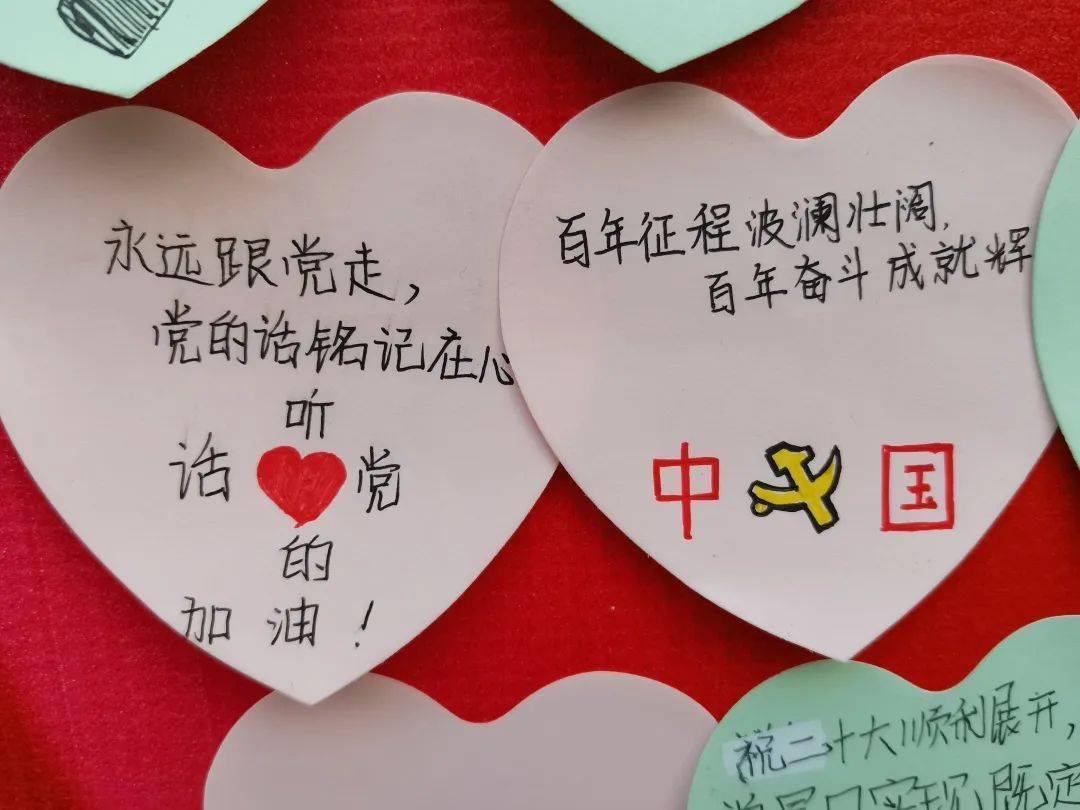 永远跟党走,
党的话铭记在心
听
话 党
的
加油！
百年征程波澜壮阔,
百年奋斗成就辉
中 国
祝二十大顺利展开,
实现既定